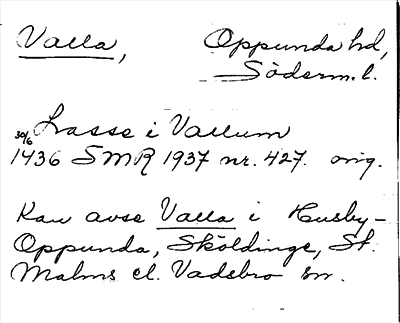 Valla, Oppunda hd,
Söderm. l.
Lasse i Vallum
30/6 1436 SMR 1937 nr. 427. orig.
Kan avse Valla i Husby-
Oppunda, Sköldinge, St.
Malms el. Vadsbro sn.